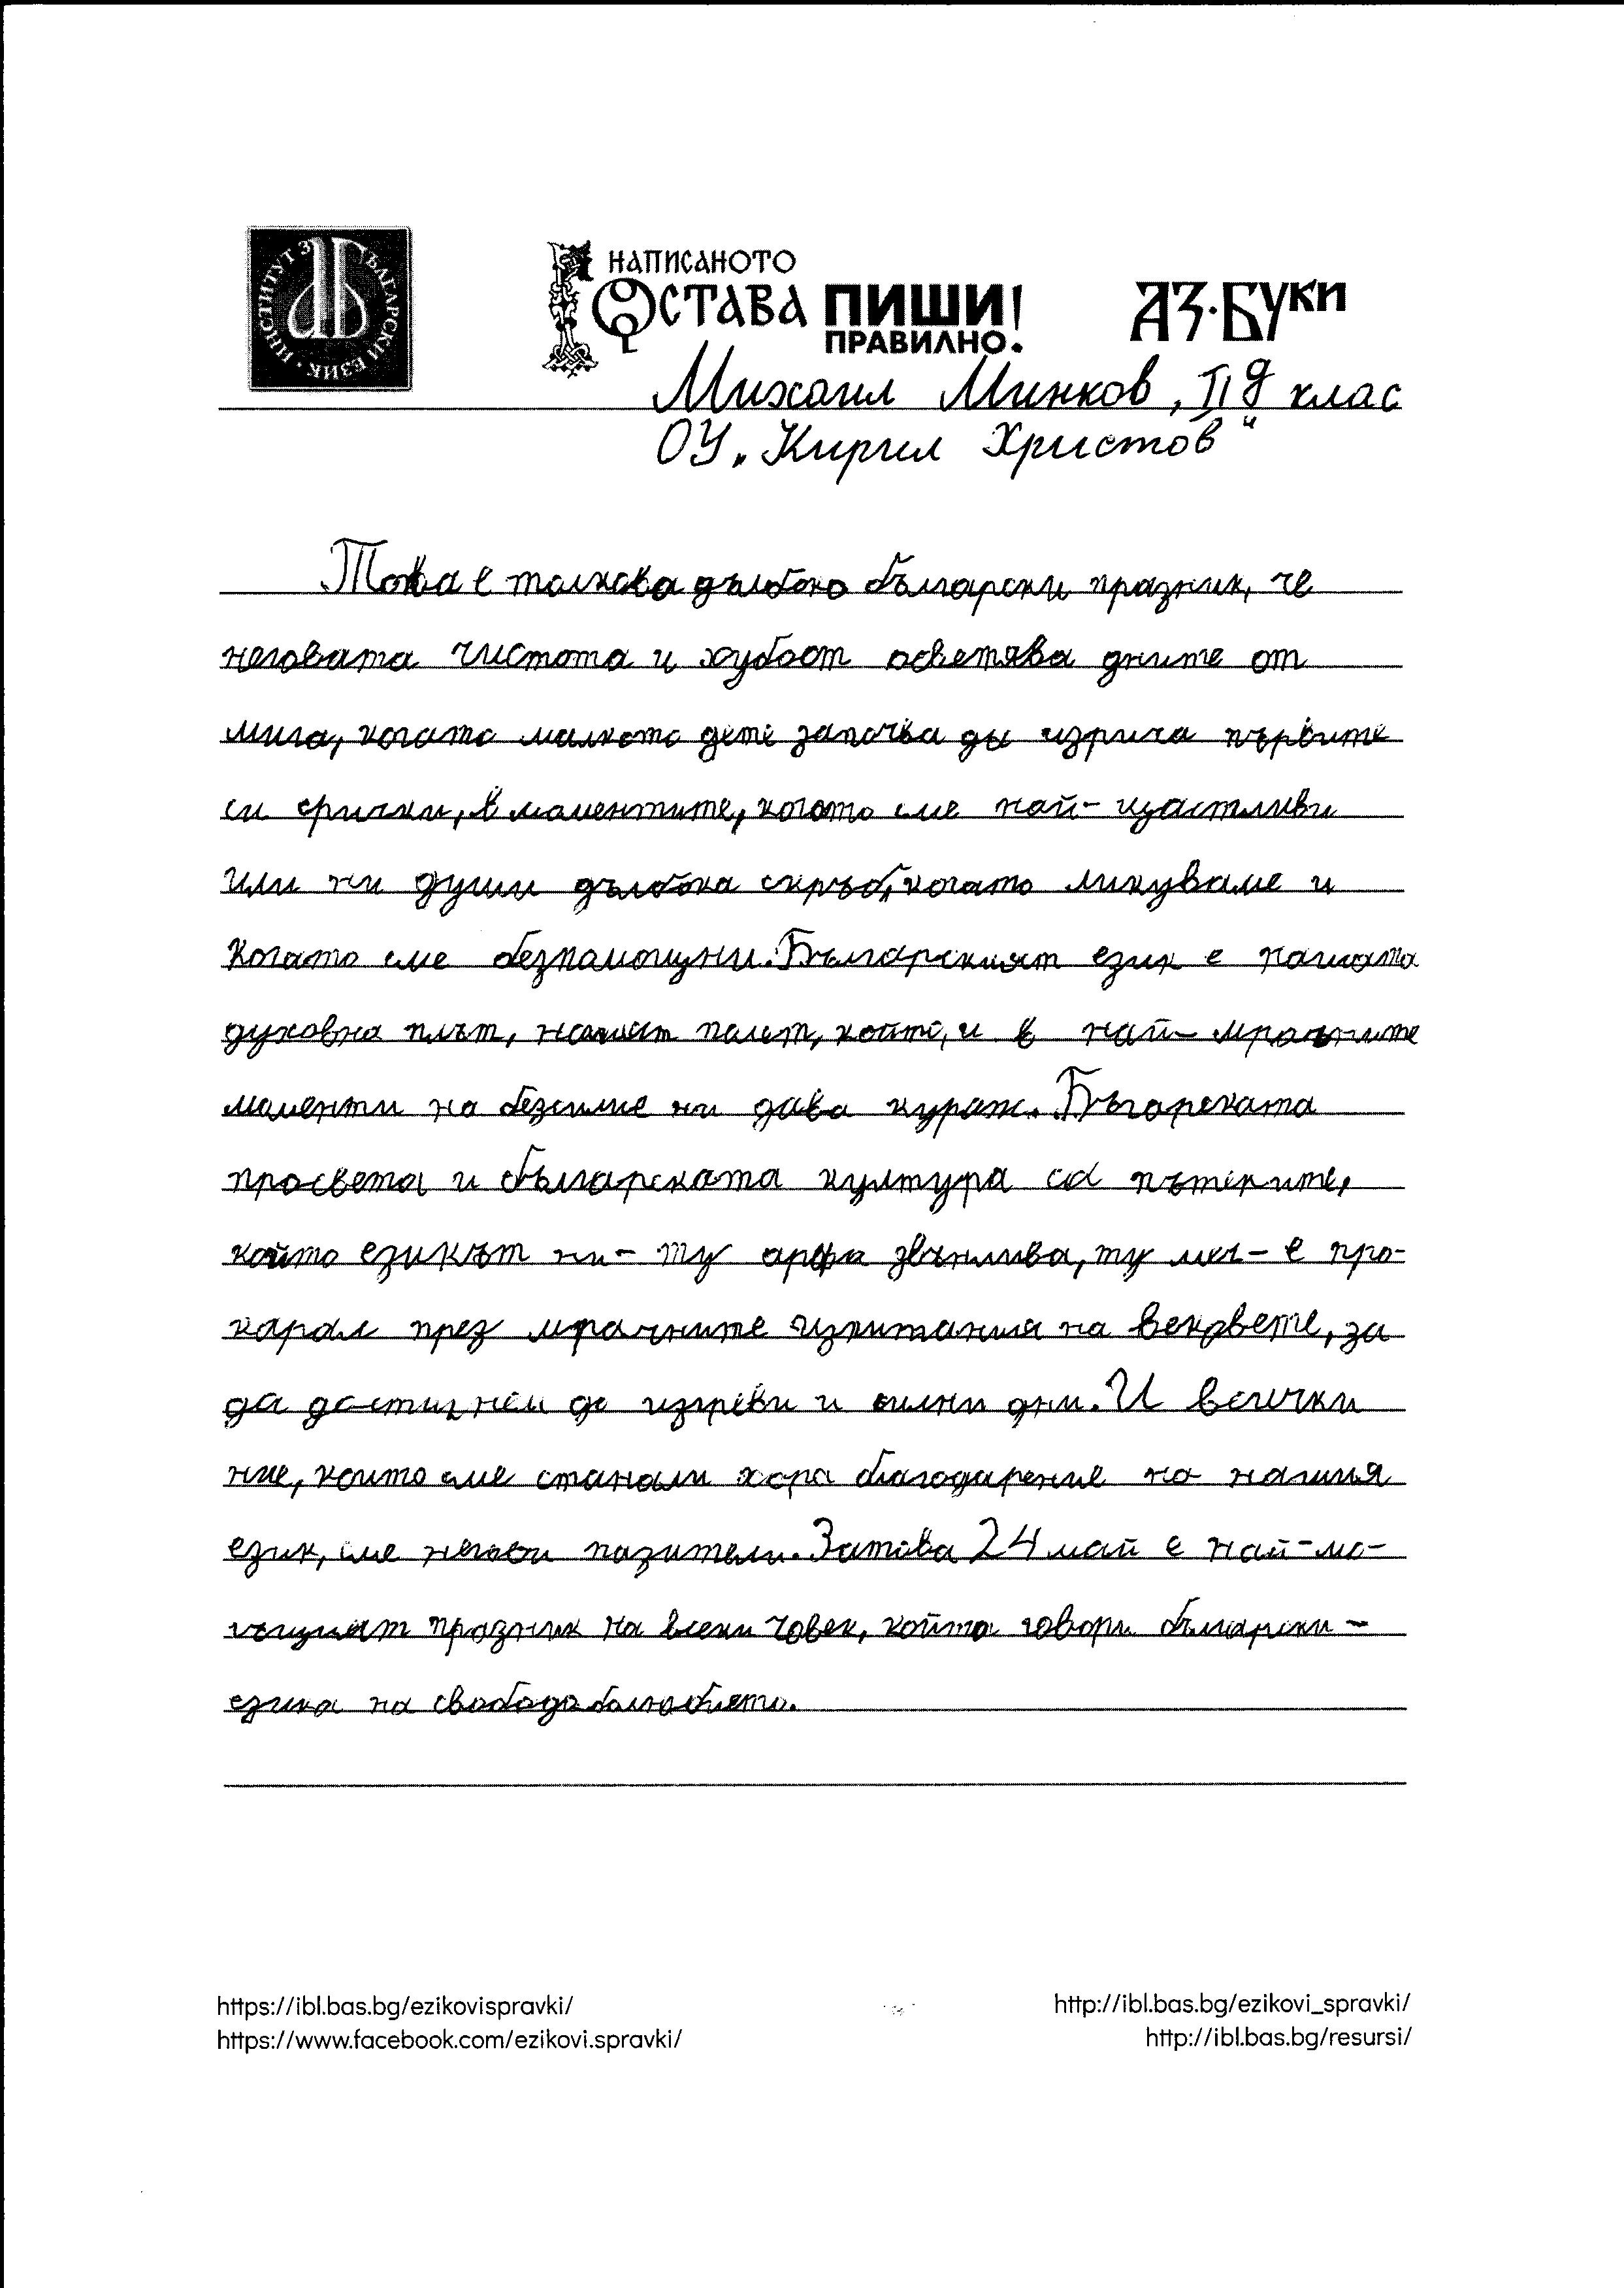 ИНСТИТУТ ЗА БЪЛГАРСКИ ЕЗИК
НАПИСАНОТО
ОСТАВА ПИШИ!
ПРАВИЛНО.
АЗ·БУКИ
Михаил Минков, II д клас
ОУ „Кирил Христов“
Това е толкова дълбоко български празник, че
неговата чистота и хубост осветява дните от
мига, когато малкото дете започва да изрича първите
си срички, в моментите, когато сме най-щастливи
или ни души дълбока скръб, когато ликуваме и
когато сме безпомощни. Българският език е нашата
духовна плът, нашият полет, който, и в най-мрачните
моменти на безсилие ни дава кураж. Бъгарската
просвета и българската култура са пътеките,
който езикът ни - ту арфа звънлива, ту меч - е про-
карал през мрачните изпитания на вековете, за
да достигнем до изгреви и силни дни. И всички
ние, които сме станали хора благодарение на нашия
език, сме негови пазители. Затова 24 май е най-мо-
гъщият празник на всеки човек, който говори български -
езика на свободолюбието.
https://ibl.bas.bg/ezikovispravki/
https://www.facebook.com/ezikovi.spravki/
http://ibl.bas.bg/ezikovi_spravki/
http://ibl.bas.bg/resursi/